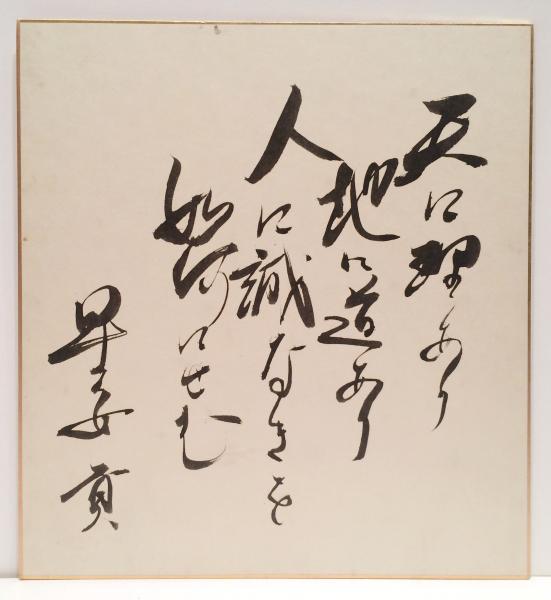 天に理あり
地に道あり
人に誠なきを
如何にせむ
貢